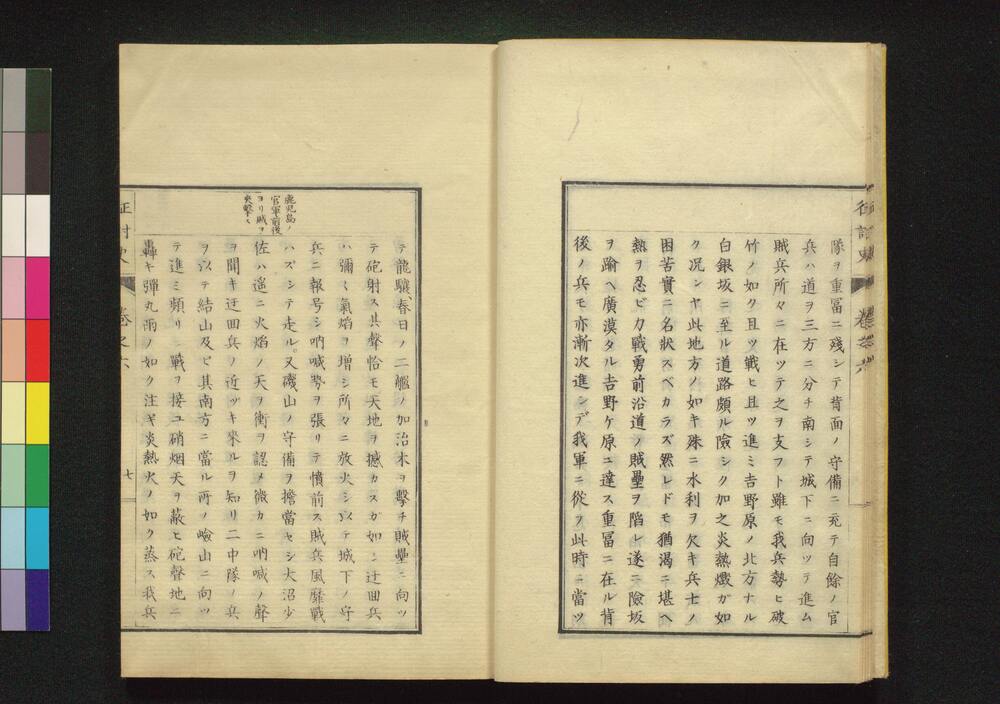 隊ヲ重冨ニ殘シテ背面ノ守備ニ充テ自餘ノ官
兵ハ道ヲ三方ニ分チ南シテ城下ニ向ツテ進ム
賊兵所々ニ在ツテ之ヲ支フト雖モ我兵勢ヒ破
竹ノ如ク且ツ戰ヒ且ツ進ミ吉野原ノ北方ナル
白銀坂ニ至ル道路頗ル險シク加之炎熱燬ガ如
ク况ンヤ此地方ノ如キ殊ニ水利ヲ欠キ兵士ノ
困苦實ニ名狀スベカラズ然レドモ猶渴ニ堪ヘ
熱ヲ忍ビ力戰勇前沿道ノ賊壘ヲ陷レ遂ニ險坂
ヲ踰ヘ廣漠タル吉野ケ原ニ達ス重冨ニ在ル背
後ノ兵モ亦漸次進ンデ我軍ニ從フ此時ニ當ツ
鹿児島ノ
官軍前後
ヨリ賊ヲ
夾撃ス
テ龍驤、春日ノ二艦ノ加治木ヲ擊チ賊壘ニ向ツ
テ砲射ス其聲恰モ天地ヲ撼カスガ如シ辻田兵
ハ彌〻氣焰ヲ增シ所々ニ放火シ以テ城下ノ守
兵ニ報号シ吶喊勢ヲ張リテ憤前ス賊兵風靡戰
ハズシテ走ル。又磯山ノ守備ヲ擔當セシ大沼少
佐ハ遥ニ火焰ノ天ヲ衝ヲ認メ微カニ吶喊ノ聲
ヲ聞キ迂田兵ノ近ヅキ來ルヲ知リ二中隊ノ兵
ヲ以テ結山及ビ其南方ニ當ル所ノ嶮山ニ向ツ
テ進ミ頻リニ戰ヲ接ユ硝烟天ヲ蔽ヒ砲聲地ニ
轟キ彈丸雨ノ如ク注ギ炎熱火ノ如ク蒸ス我兵
征討史 卷之六 七